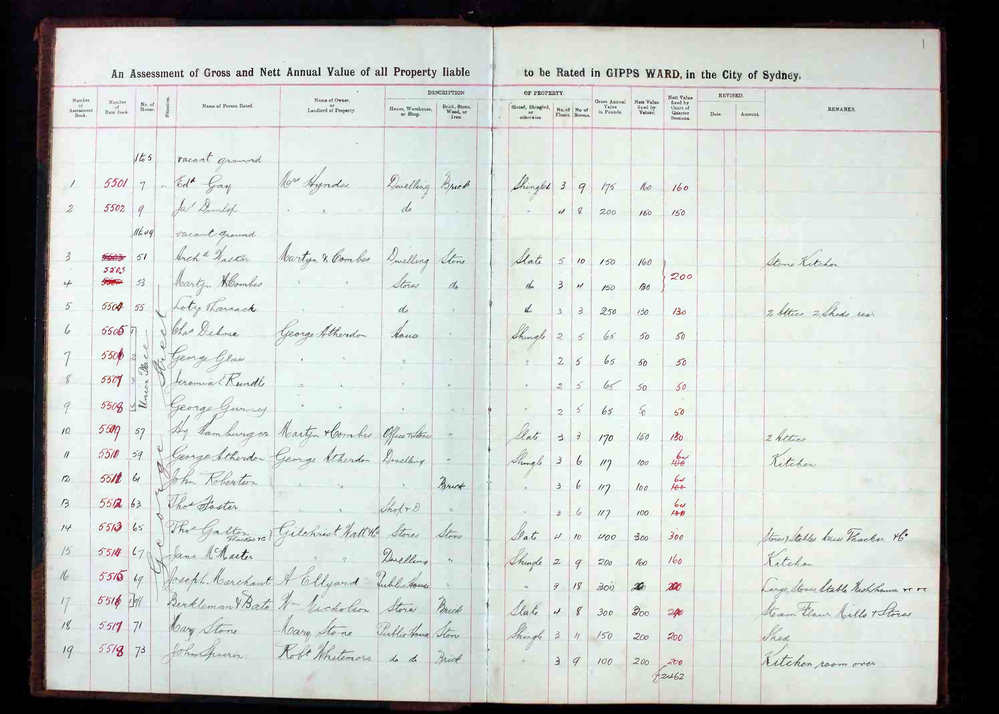 1
An Assessment of Gross and Nett Annual Value of all Property liable to be Rated in GIPPS WARD, in the City of Sydney.
DESCRIPTION OF PROPERTY. REVISED.
Number of Assessment Book. Number of Rate Book. No. of House. Situation. Name of Person Rated. Name of Owner, or Landlord of Property. House, Warehouse, or Shop. Brick, Stone, Wood, or Iron. Slated, Shingled, or otherwise. No. of Floors. No of Rooms. Gross Annual Value in Pounds. Nett Value fixed by Valuer. Nett Value fixed by Court of Quarter Sessions. Date. Amount. REMARKS.
George Street
Union Place
1 to 5 vacant ground
1 5501 7 Edd Gay Mrs Hynds Dwelling Brick Shingled 3 9 175 160 160
2 5502 9 Jas Dunlop " " do " 4 8 200 150 150
11 to 49 vacant ground
3 5503 51 Archd Walker Martyn & Combes Dwelling Stone Slate 5 10 150 160 Stone Kitchen
4 5503 53 Martyn & Combes " " Stores do do 3 4 150 130 200
5 5504 55 do " do 3 3 250 130 130 2 Attics 2 Sheds
6 5505 1 Chas George Atherdon House Shingle 2 5 65 50 50
7 5506 2 George Glass " " " 2 5 65 50 50
8 5507 3 Jeremiah Rundle " " " 2 5 65 50 50
9 5508 George Gurney " " " 2 5 65 50 50
10 5509 57 Hy Hamburger Martyn & Combes Office & Store " Slate 3 3 170 150 130 2 Attics
11 5510 59 George Atherdon George Atherdon Dwelling " Shingle 3 6 117 100 100 Kitchen
12 5511 61 John Robertson " " Brick 3 6 117 100 100
13 5512 63 Thos Foster " Shop & D " 3 6 117 100 100
14 5513 65 Thos Gilchrist Watt & Co Stores Stone Slate 4 10 400 300 300 Stables Thacker & Co
15 5514 67 Jane McMaster " " Dwelling " Shingle 2 9 200 160 160 Kitchen
16 5515 69 Joseph Marchant A Ellyard Public House " " 9 18 300 Large Stone Stable Washhouse
17 5516 Berkleman & Bate Wm Nicholson Stores Brick Slate 4 8 300 300 Steam Flour Mills & Stores
18 5517 71 Mary Stone Mary Stone Public House Stone Shingle 3 11 150 200 200 Shed
19 5518 73 John Robt Whitemore do do Brick 3 9 100 200 200 Kitchen room over
£2462